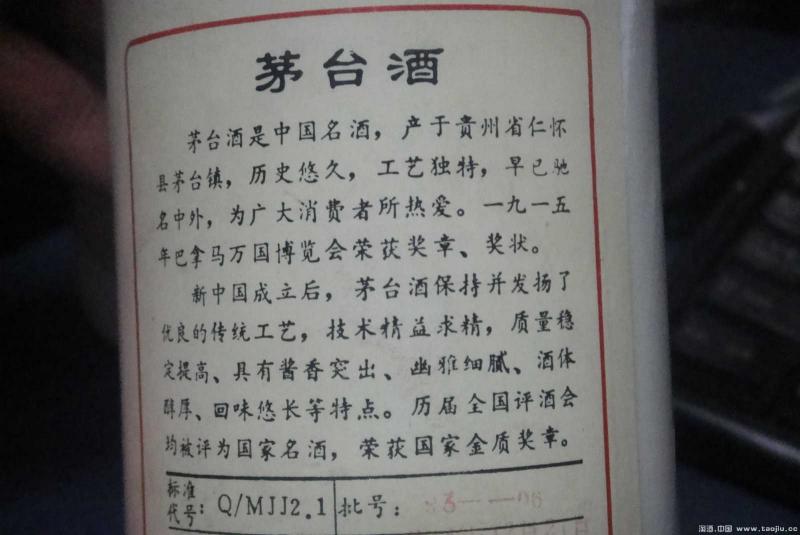 茅台酒
茅台酒是中国名酒，产于贵州省仁怀
县茅台镇，历史悠久，工艺独特，早已驰
名中外，为广大消费者所热爱。一九一五
年巴拿马万国博览会荣获奖章、奖状。
新中国成立后，茅台酒保持并发扬了
优良的传统工艺，技术精益求精，质量稳
定提高、具有酱香突出、幽雅细腻、酒体
醇厚、回味悠长等特点。历届全国评酒会
均被评为国家名酒，荣获国家金质奖章。
标准代号：Q/MJJ2.1 批号：
淘酒.中国 www.taojiu.cc